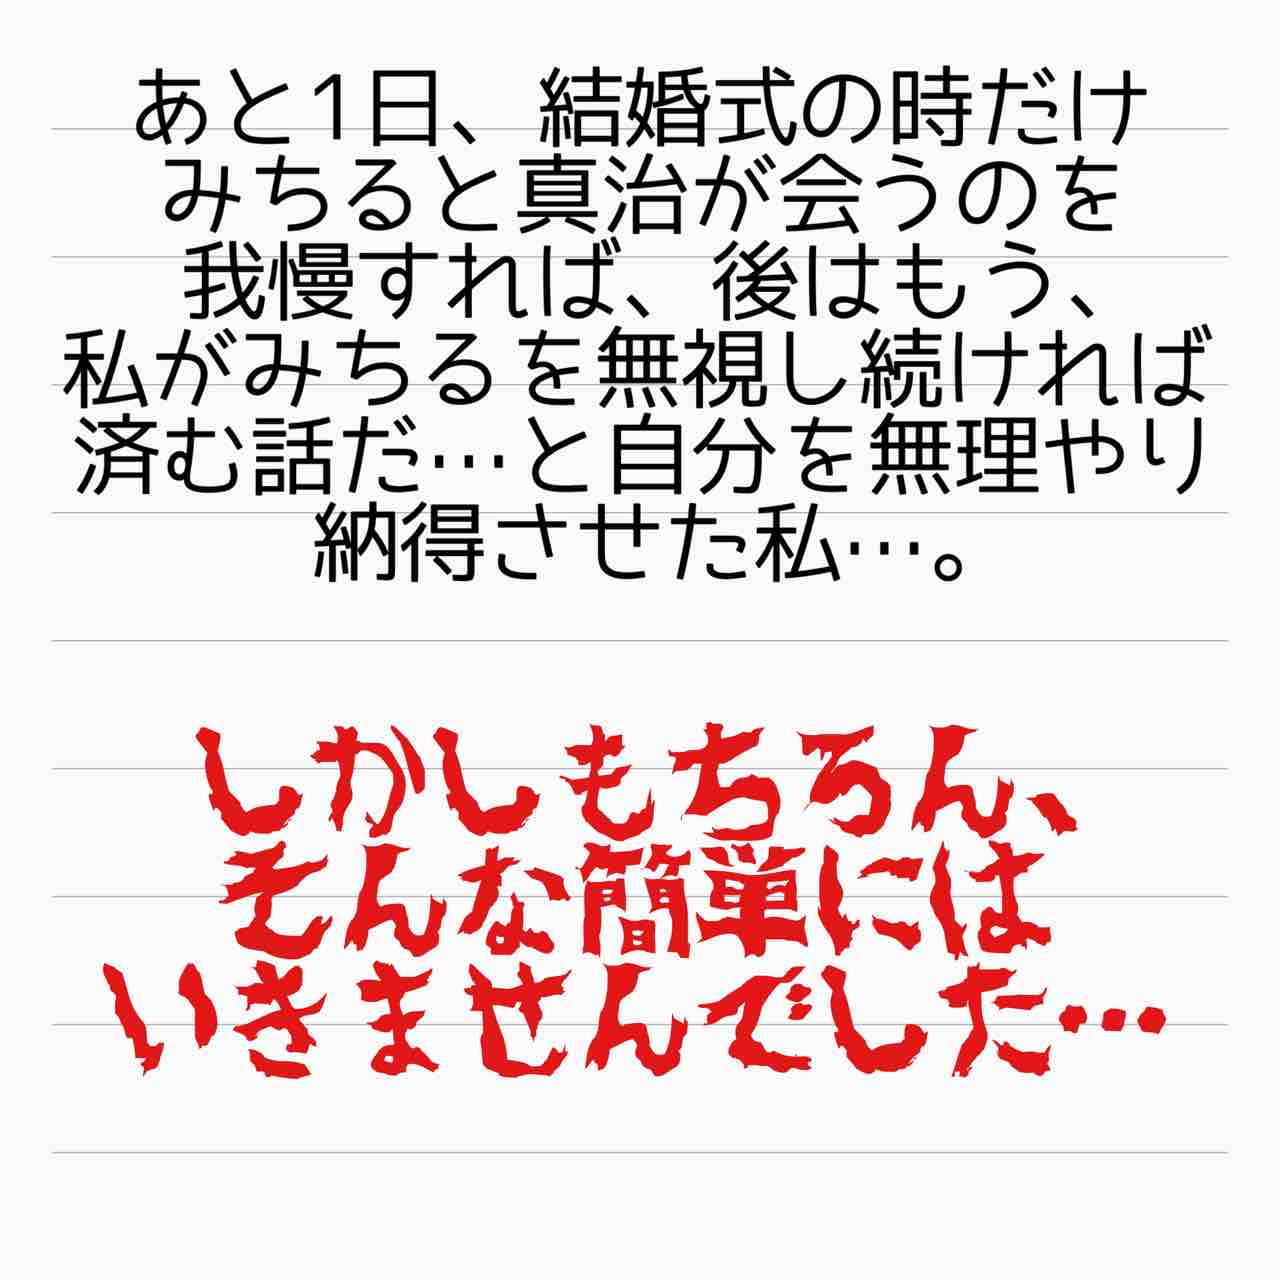 あと1日、結婚式の時だけ
みちると真治が会うのを
我慢すれば、後はもう、
私がみちるを無視し続ければ
済む話だ…と自分を無理やり
納得させた私…。
しかしもちろん、
そんな簡単には
いきませんでした…